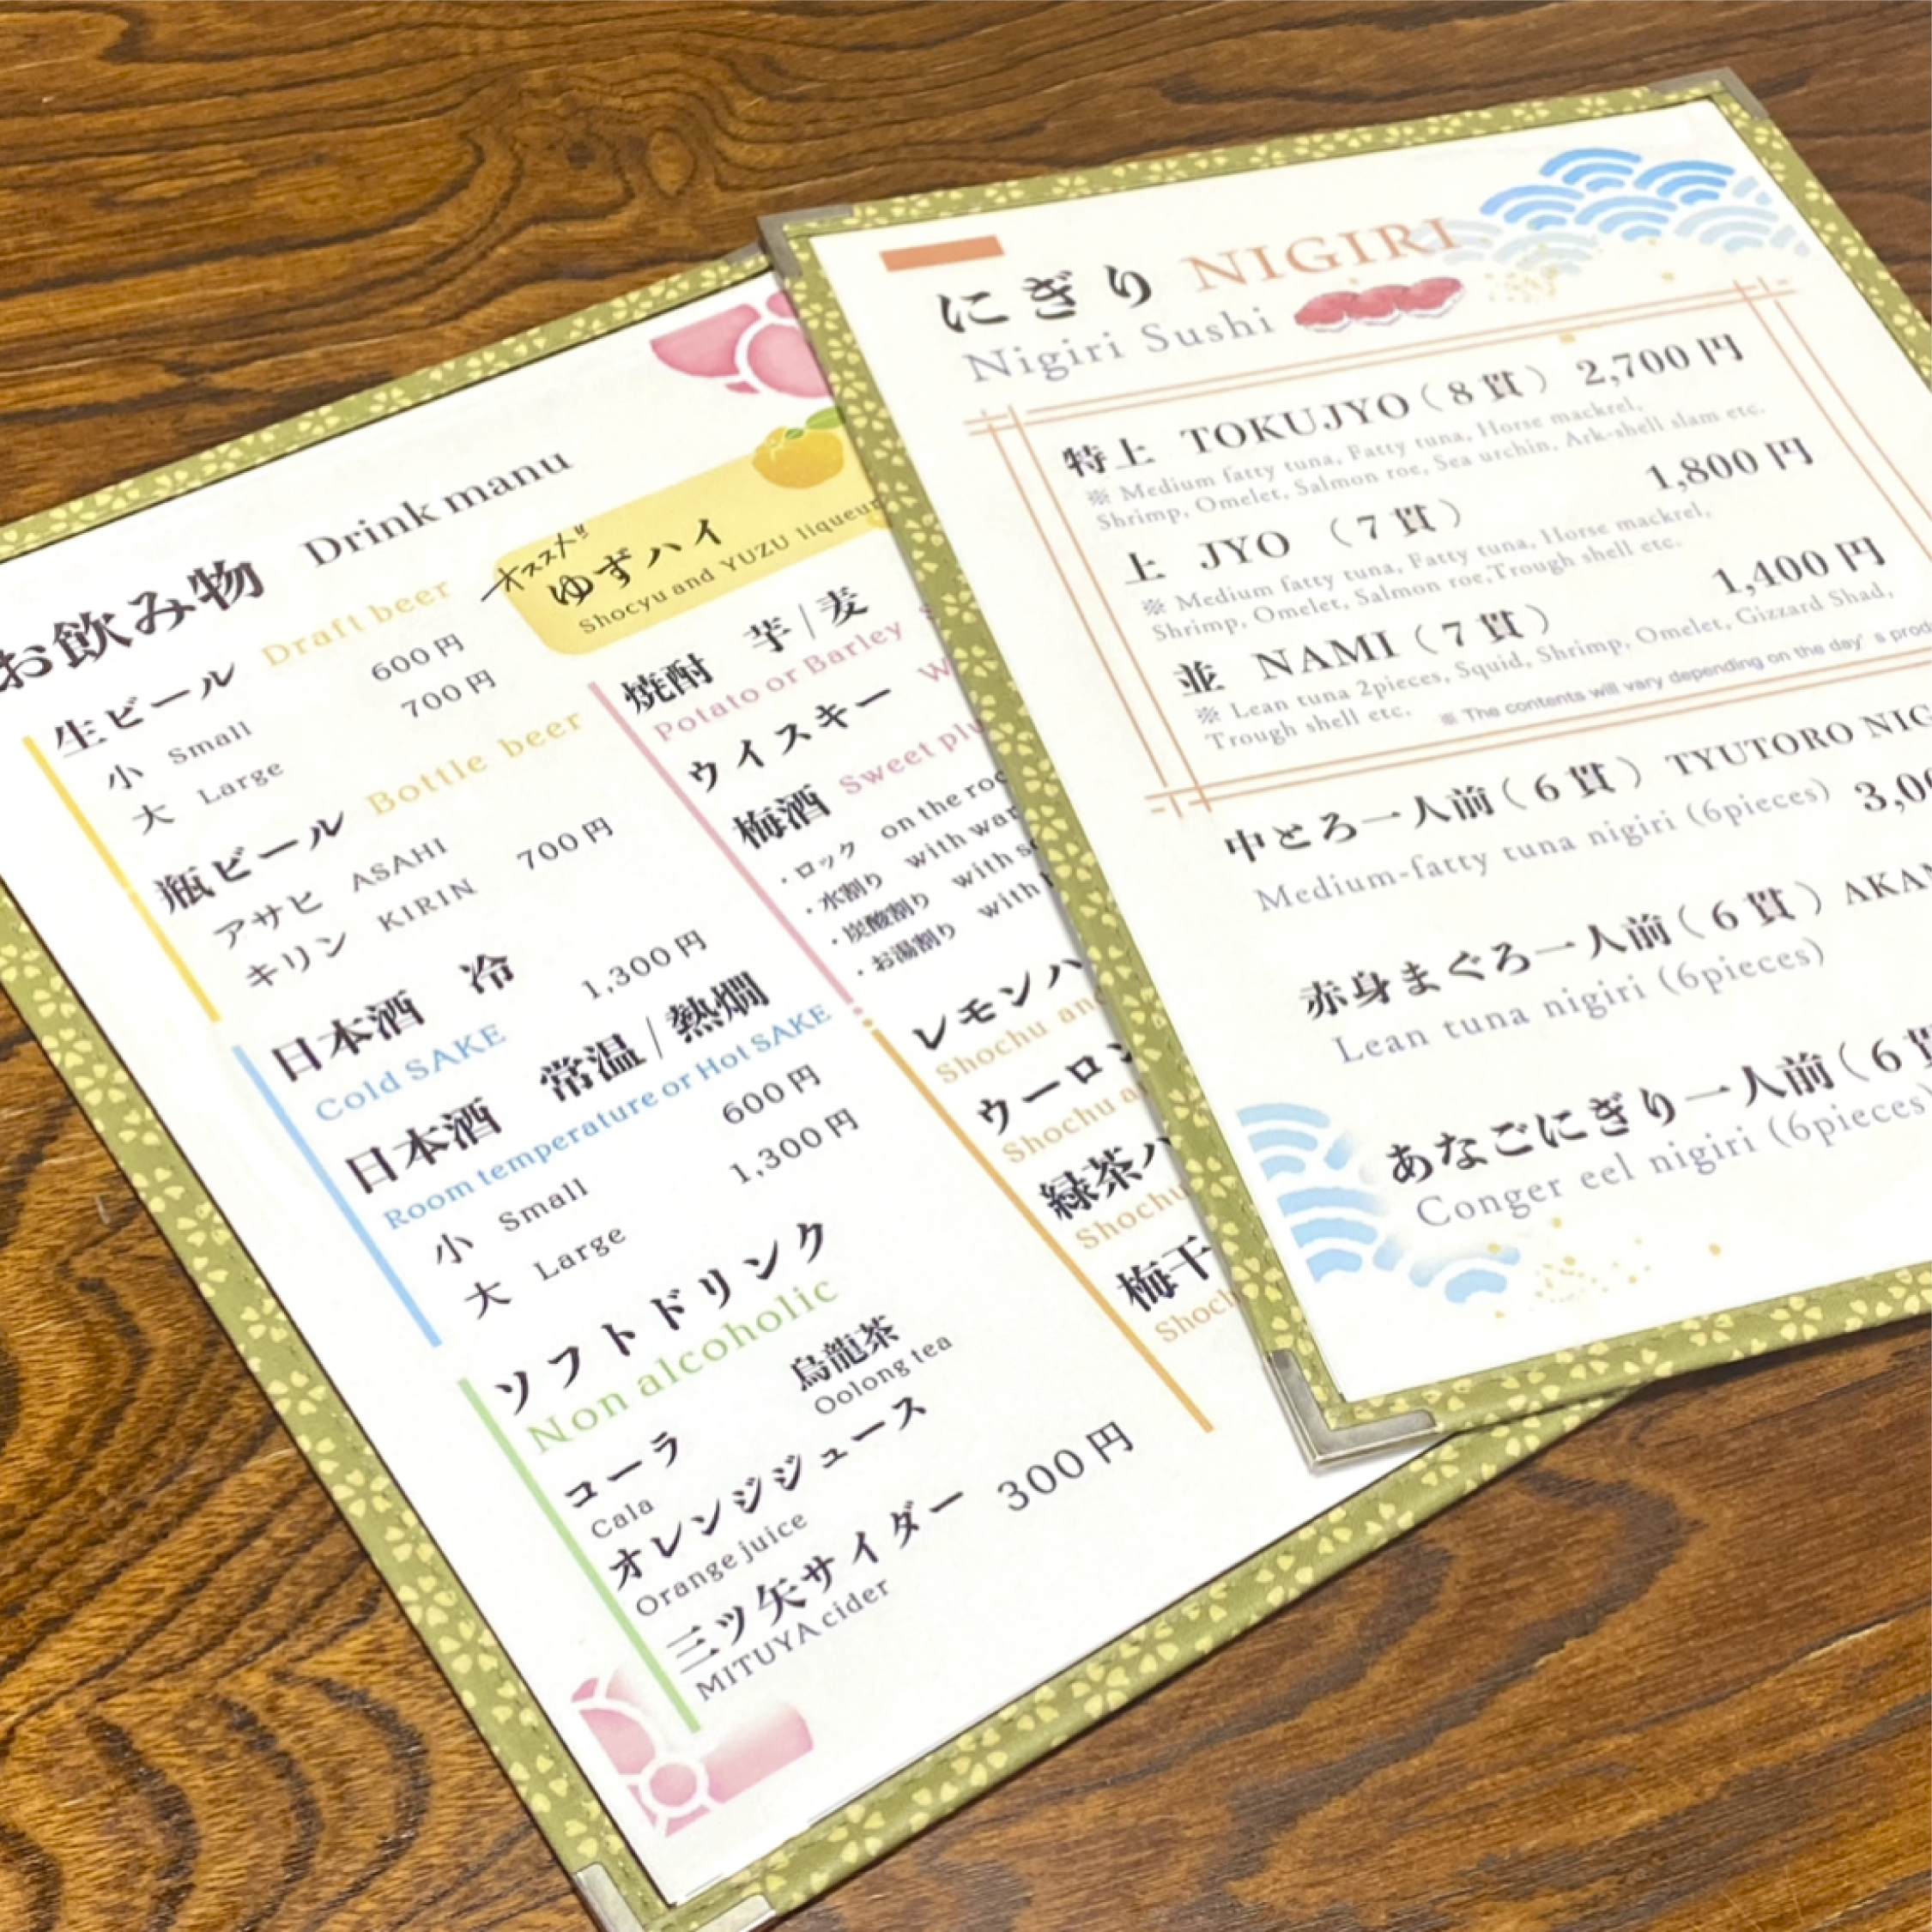 お飲み物 Drink manu
生ビール Draft beer
小 Small 600円
大 Large 700円
瓶ビール Bottle beer
アサヒ ASAHI
キリン KIRIN 700円
日本酒 冷 1,300円
Cold SAKE
日本酒 常温/熱燗
Room temperature or Hot SAKE
小 Small 600円
大 Large 1,300円
ソフトドリンク
Non alcoholic
コーラ 烏龍茶
Cala Oolong tea
オレンジジュース
Orange juice
三ツ矢サイダー 300円
MITUYA cider
オススメ!!
ゆずハイ
Shocyu and YUZU liqueur
焼酎 芋/麦
Potato or Barley
ウイスキー
梅酒 Sweet
・ロック on the
・水割り with
・炭酸割り with
・お湯割り with
レモン
Shochu
ウーロン
Shochu
緑茶
Shochu
梅干
にぎり NIGIRI
Nigiri Sushi
特上 TOKUJYO(8貫) 2,700円
※ Medium fatty tuna, Fatty tuna, Horse mackrel,
Shrimp, Omelet, Salmon roe, Sea urchin, Ark-shell slam etc.
上 JYO (7貫) 1,800円
※ Medium fatty tuna, Fatty tuna, Horse mackrel,
Shrimp, Omelet, Salmon roe,Trough shell etc.
並 NAMI(7貫) 1,400円
※ Lean tuna 2pieces, Squid, Shrimp, Omelet, Gizzard Shad,
Trough shell etc. ※ The contents will vary depending on the day's
中とろ一人前(6貫) TYUTORO
Medium-fatty tuna nigiri (6pieces)
赤身まぐろ一人前(6貫)
Lean tuna nigiri (6pieces)
あなごにぎり一人前(6貫
Conger eel nigiri (6pieces)